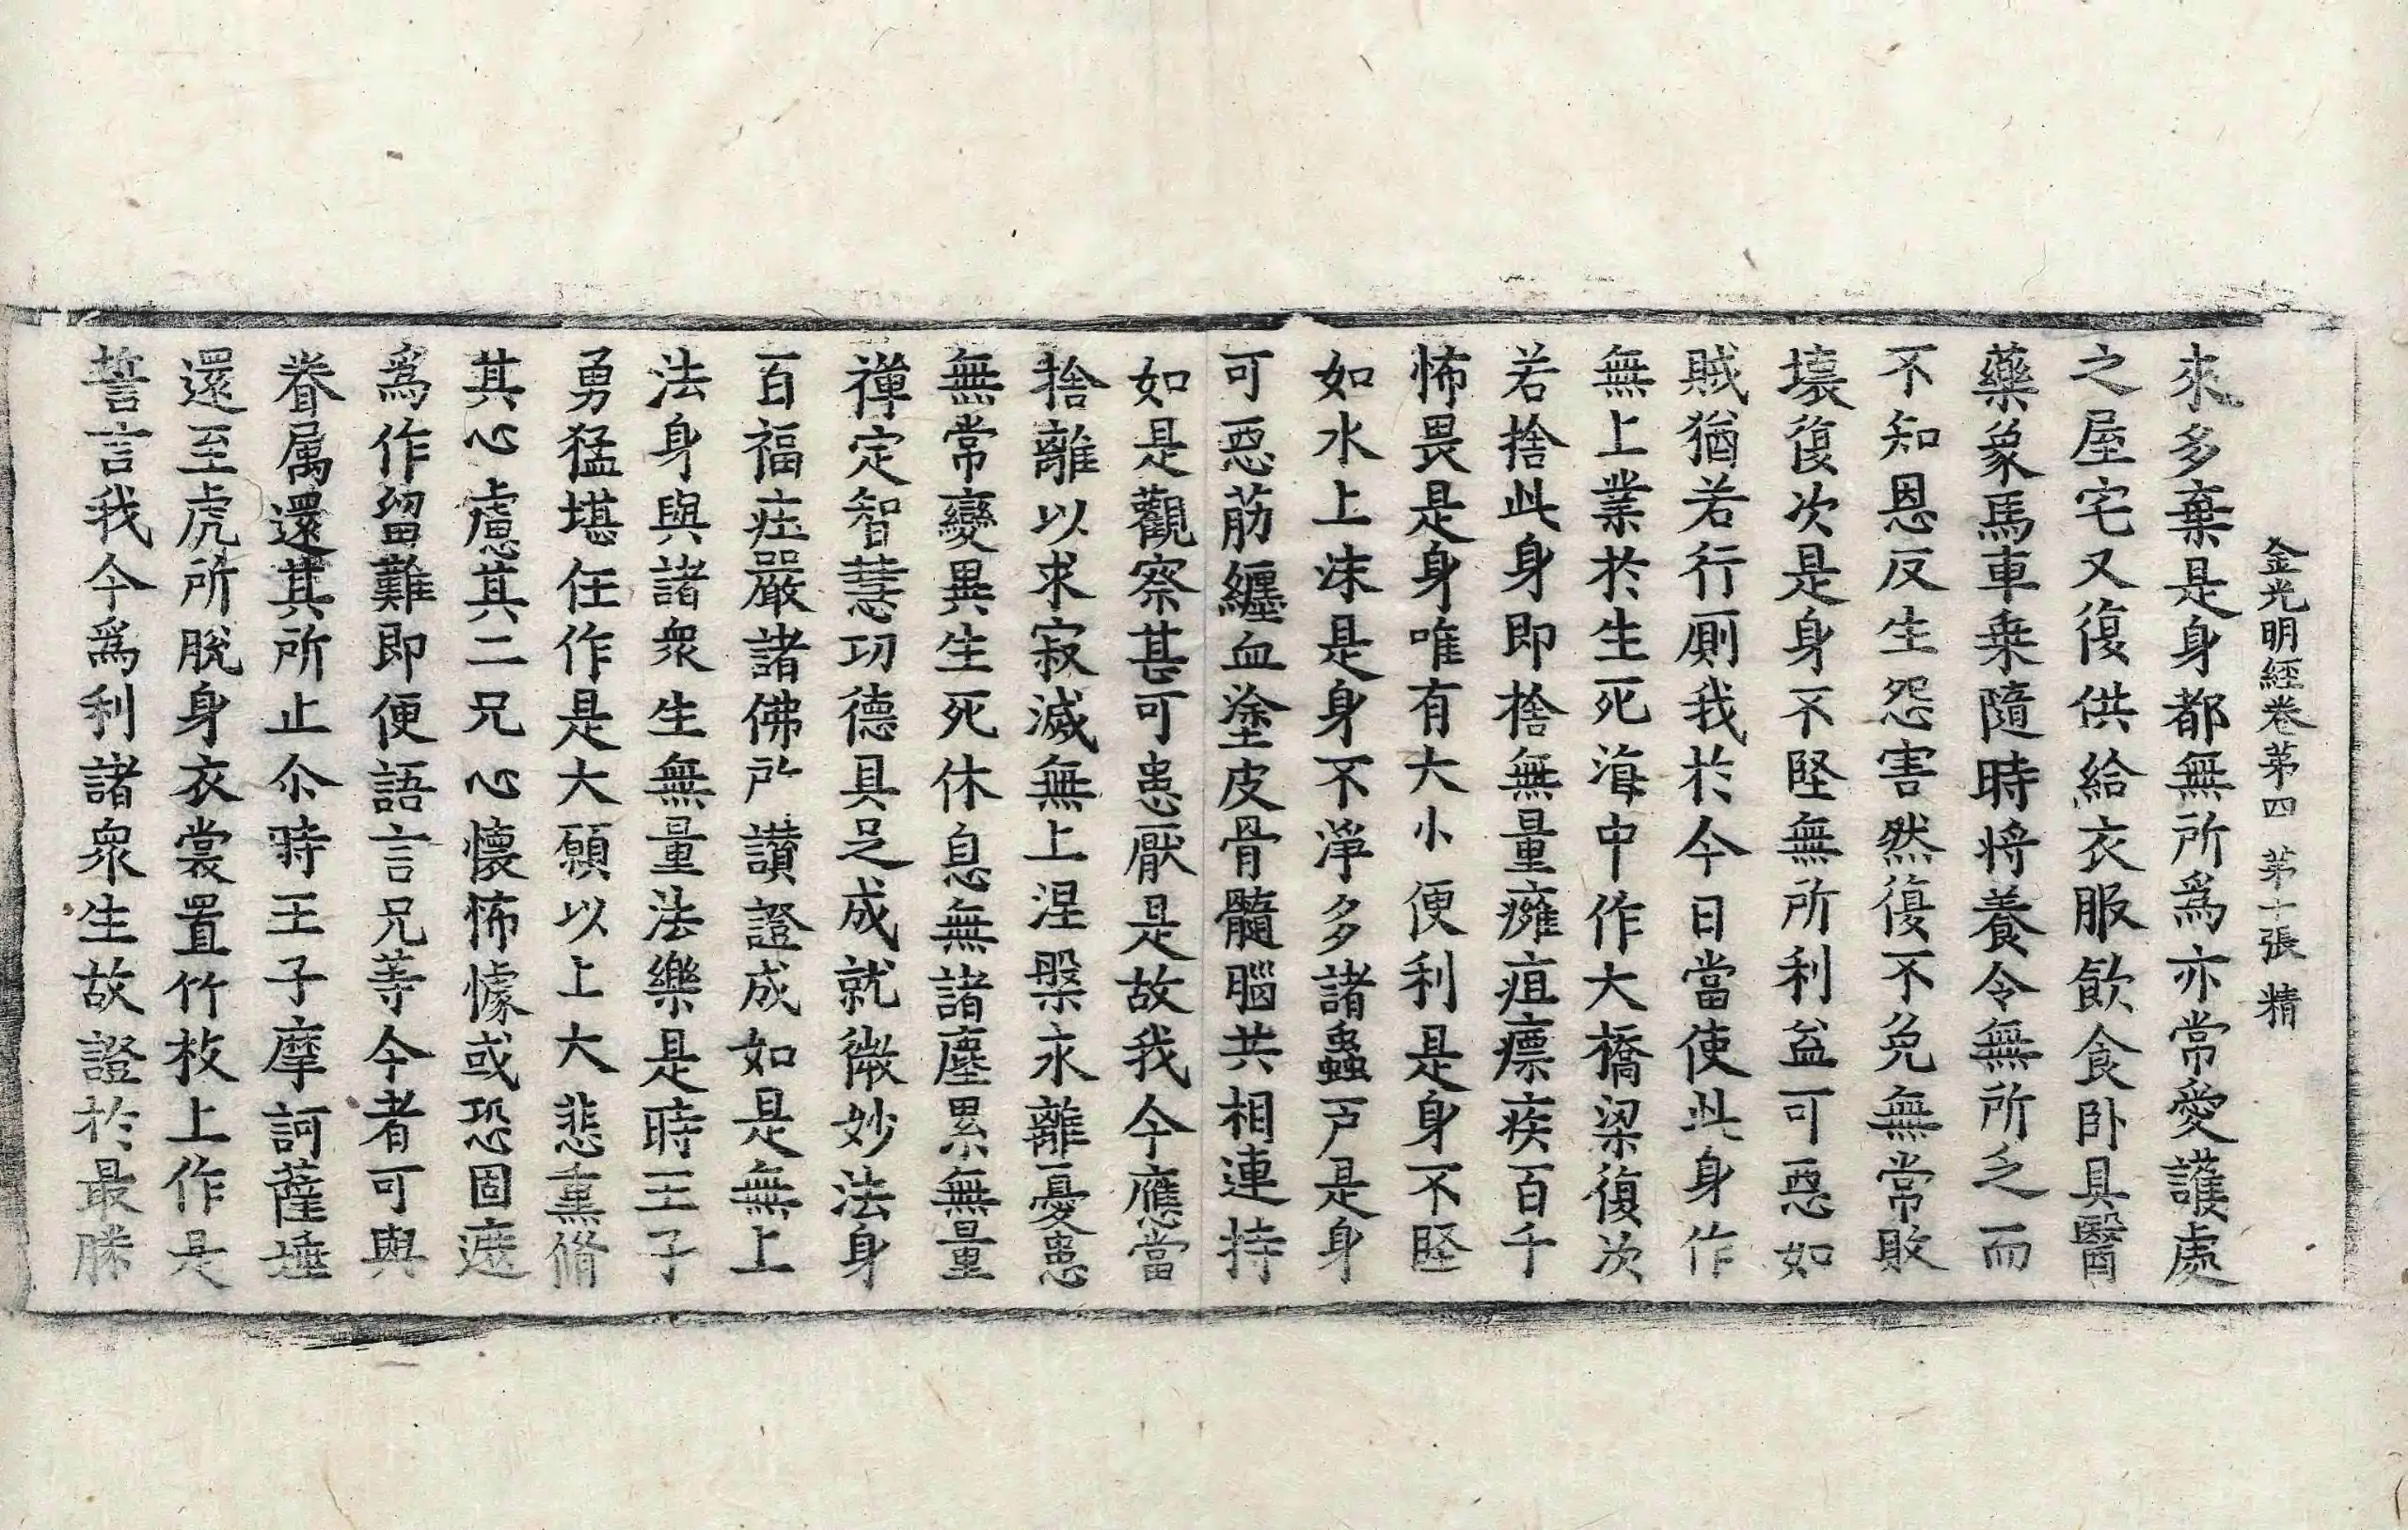 金光明經卷第四 第十張 精
來多棄是身都無所爲亦常愛護處
之屋宅又復供給衣服飮食卧具醫
藥象馬車乗隨時将養令無所乏而
不知恩反生怨害然復不免無常敗
壞復次是身不堅無所利益可惡如
賊猶若行厠我於今日當使此身作
無上業於生死海中作大橋梁復次
若捨此身即捨無量癰疽瘭疾百千
怖畏是身唯有大小便利是身不堅
如水上沫是身不淨多諸蟲戸是身
可惡筋纏血塗皮骨髓腦共相連持
如是觀察甚可患厭是故我今應當
捨離以求寂滅無上涅槃永離憂患
無常變異生死休息無諸塵累無量
禪定智慧功德具足成就微妙法身
百福莊嚴諸佛所讃證成如是無上
法身與諸衆生無量法樂是時王子
勇猛堪任作是大願以上大悲熏脩
其心慮其二兄心懷怖懅或恐固遮
爲作留難即便語言兄等今者可與
眷属還其所止尒時王子摩訶薩埵
還至虎所脫身衣裳置竹枝上作是
誓言我今爲利諸衆生故證於最勝